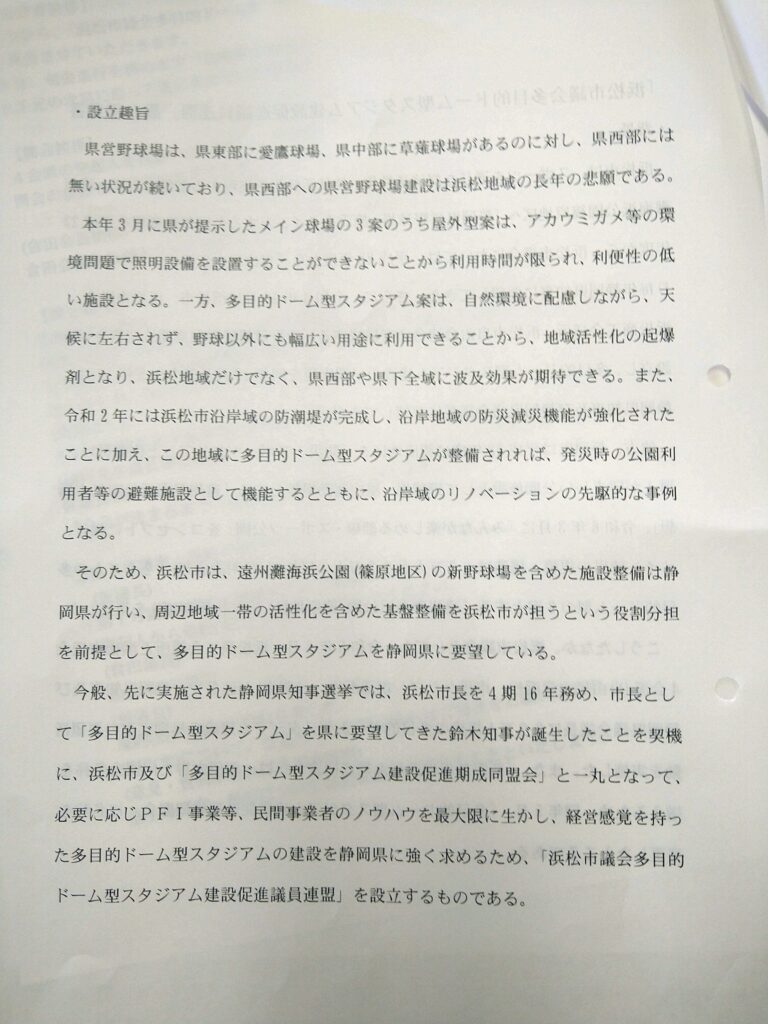 ・設立趣旨
県営野球場は、県東部に愛鷹球場、県中部に草薙球場があるのに対し、県西部には
無い状況が続いており、県西部への県営野球場建設は浜松地域の長年の悲願である。
本年3月に県が提示したメイン球場の3案のうち屋外型案は、アカウミガメ等の環
境問題で照明設備を設置することができないことから利用時間が限られ、利便性の低
い施設となる。一方、多目的ドーム型スタジアム案は、自然環境に配慮しながら、天
候に左右されず、野球以外にも幅広い用途に利用できることから、地域活性化の起爆
剤となり、浜松地域だけでなく、県西部や県下全域に波及効果が期待できる。また、
令和2年には浜松市沿岸域の防潮堤が完成し、沿岸地域の防災減災機能が強化された
ことに加え、この地域に多目的ドーム型スタジアムが整備されれば、発災時の公園利
用者等の避難施設として機能するとともに、沿岸域のリノベーションの先駆的な事例
となる。
そのため、浜松市は、遠州灘海浜公園(篠原地区)の新野球場を含めた施設整備は静
岡県が行い、周辺地域一帯の活性化を含めた基盤整備を浜松市が担うという役割分担
を前提として、多目的ドーム型スタジアムを静岡県に要望している。
今般、先に実施された静岡県知事選挙では、浜松市長を4期16年務め、市長とし
て「多目的ドーム型スタジアム」を県に要望してきた鈴木知事が誕生したことを契機
に、浜松市及び「多目的ドーム型スタジアム建設促進期成同盟会」と一丸となって、
必要に応じＰＦＩ事業等、民間事業者のノウハウを最大限に生かし、経営感覚を持っ
た多目的ドーム型スタジアムの建設を静岡県に強く求めるため、「浜松市議会多目的
ドーム型スタジアム建設促進議員連盟」を設立するものである。